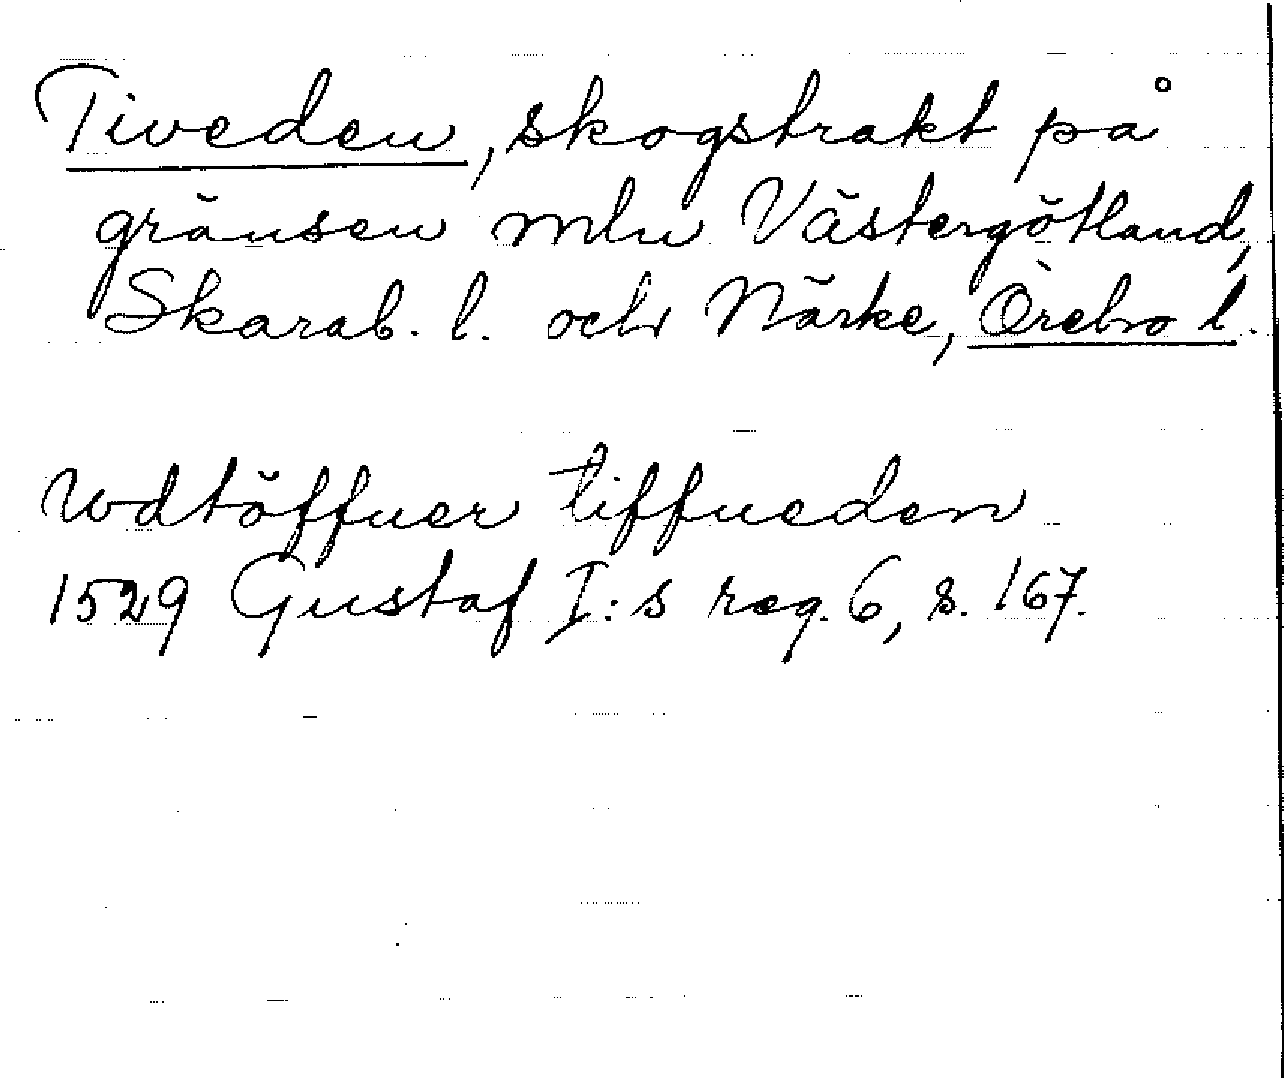 Tiveden, skogstrakt på
gränsen mln Västergötland,
Skarab. l. och Närke, Örebro l.
wdtöffuer tiffueden
1529 Gustaf I:s reg. 6, s. 167.